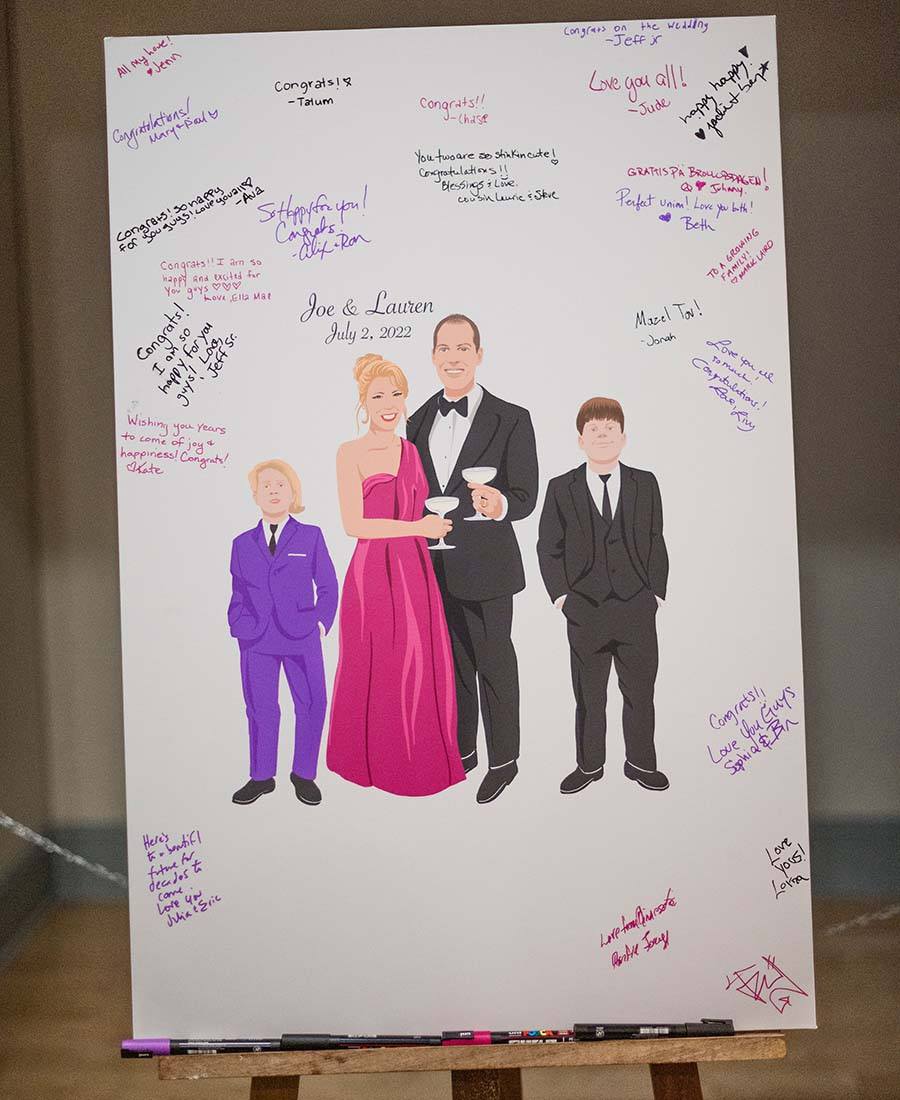 All my love!
♥Jenn
Congrats on the wedding
-Jeff jr
Congrats!
-Tatum
Congrats!!
-Chase
Love you all!
-Jude
happy happy!
Congratulations!
Mary & Paul
You two are so stinkin cute!
Congratulations!!
Blessings & Love.
cousin Laurie & Steve
GRATTIS PÅ BRÖLLOPSDAGEN!
Johnny.
Perfect union! Love you both!
Beth
Congrats! so happy
for you guys! Love you all!
-Ava
So Happy for you!
Congrats
-Alix & Ron
TO A GROWING
FAMILY!
MARK LAIRD
Congrats!! I am so
happy and excited for
you guys ♡♡♡
Love, Ella Mae
Joe & Lauren
July 2, 2022
Mazel Tov!
-Jonah
Congrats!
I am so
happy for you
guys! Love,
Jeff Sr.
Love you all
so much!
Congratulations!
Wishing you years
to come of joy &
happiness! Congrats!
♡Kate
Congrats!!
Love You Guys
Sophia & Ben
Here's
to a beautiful
future for
decades to
come.
Love you
Julia & Eric
Love
Yous!
Lorna
Love from Minnesota